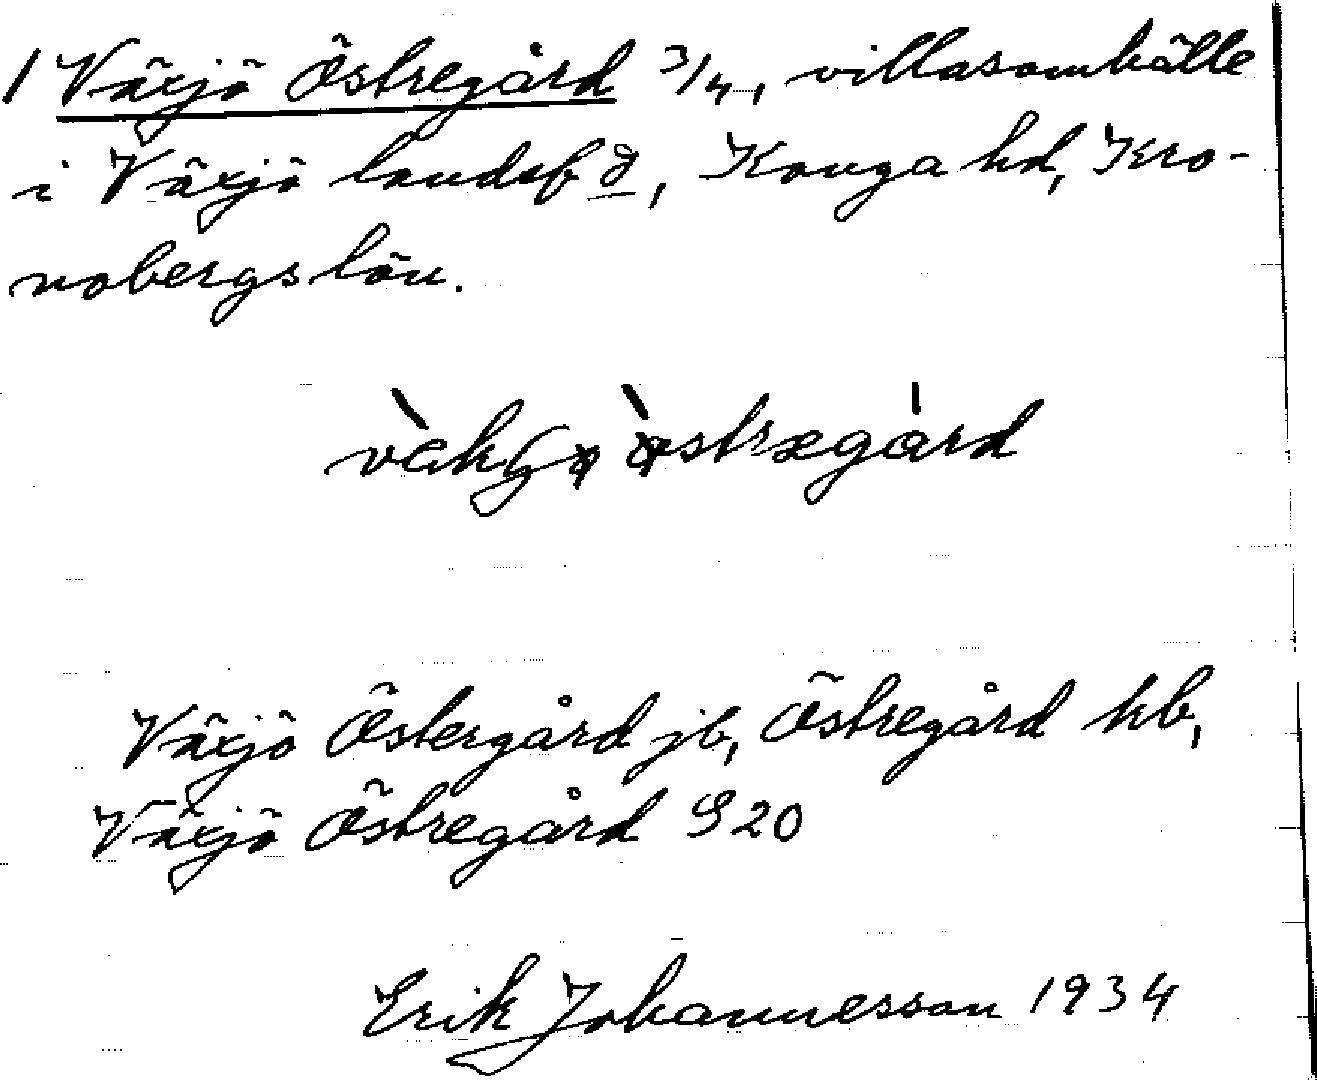 1 Växjö Östregård 3/4, villasamhälle
i Växjö landsf d, Konga hd, Kro-
nobergs län.
östregård
Växjö Östergård jb, Östregård hb,
Växjö Östregård S 20
Erik Johannesson 1934